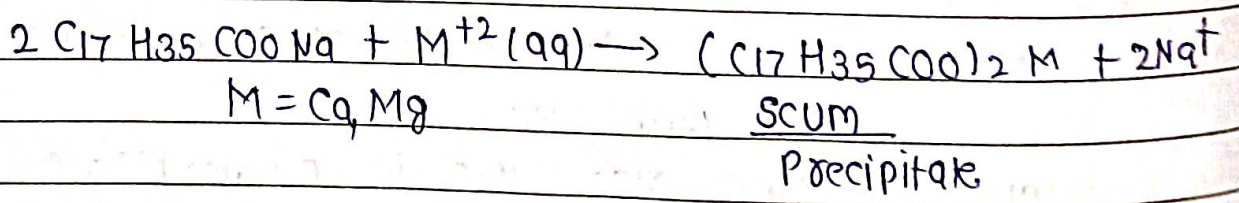 2 C17 H35 COO Na + M+2 (aq) → (C17 H35 COO)2 M + 2Na+
M = Ca, Mg SCUM
Precipitate